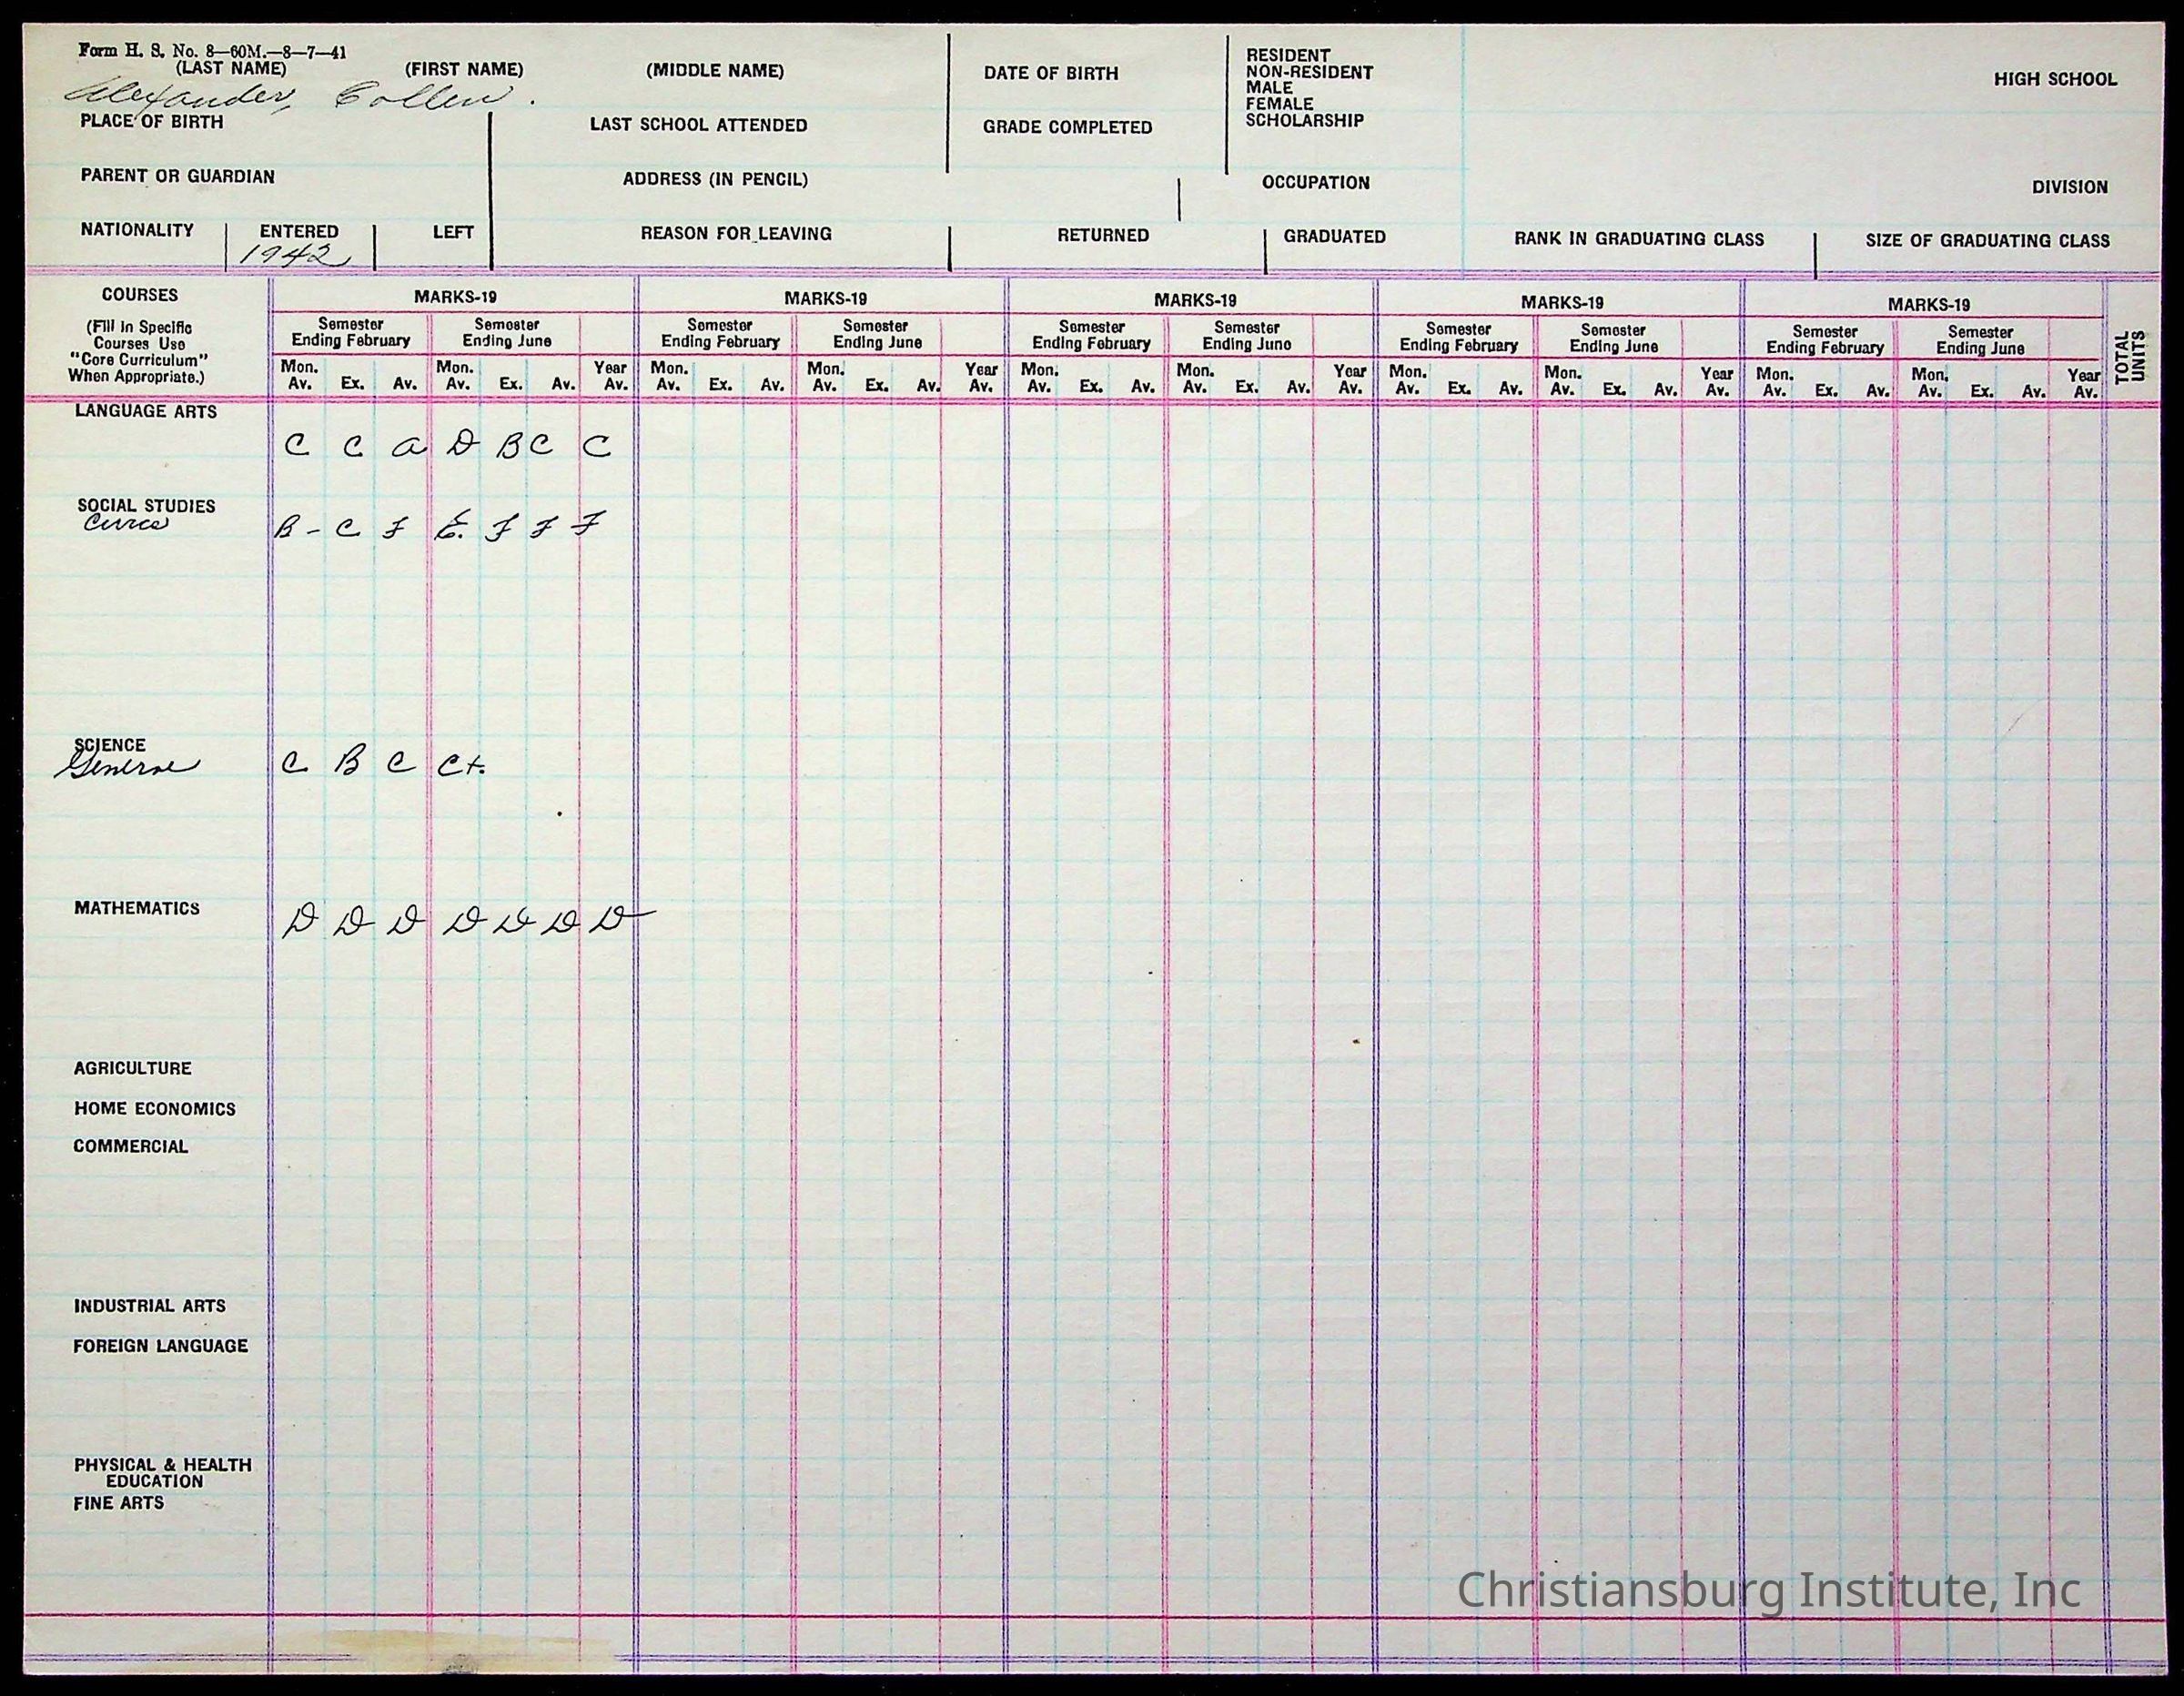 Form H. S. No. 8—60M.—8—7—41
(LAST NAME) (FIRST NAME) (MIDDLE NAME) DATE OF BIRTH RESIDENT HIGH SCHOOL
NON-RESIDENT
MALE
FEMALE
SCHOLARSHIP
Alexander, Collen.
PLACE OF BIRTH LAST SCHOOL ATTENDED GRADE COMPLETED
PARENT OR GUARDIAN ADDRESS (IN PENCIL) OCCUPATION DIVISION
NATIONALITY ENTERED LEFT REASON FOR LEAVING RETURNED GRADUATED RANK IN GRADUATING CLASS SIZE OF GRADUATING CLASS
1942
COURSES MARKS-19 MARKS-19 MARKS-19 MARKS-19 MARKS-19
(Fill in Specific
Courses Use
"Core Curriculum"
When Appropriate.)
Semester Semester Semester Semester Semester Semester Semester Semester Semester Semester
Ending February Ending June Ending February Ending June Ending February Ending June Ending February Ending June Ending February Ending June
Mon. Mon. Year Mon. Mon. Year Mon. Mon. Year Mon. Mon. Year Mon. Mon. Year
Av. Ex. Av. Av. Ex. Av. Av. Av. Ex. Av. Av. Ex. Av. Av. Av. Ex. Av. Av. Ex. Av. Av. Av. Ex. Av. Av. Ex. Av. Av. Av. Ex. Av. Av. Ex. Av. Av.
TOTAL
UNITS
LANGUAGE ARTS
C C a D B C C
SOCIAL STUDIES
Civics B- C F E. F F F
SCIENCE
General C B C C+.
MATHEMATICS D D D D D D D
AGRICULTURE
HOME ECONOMICS
COMMERCIAL
INDUSTRIAL ARTS
FOREIGN LANGUAGE
PHYSICAL & HEALTH
EDUCATION
FINE ARTS
Christiansburg Institute, Inc